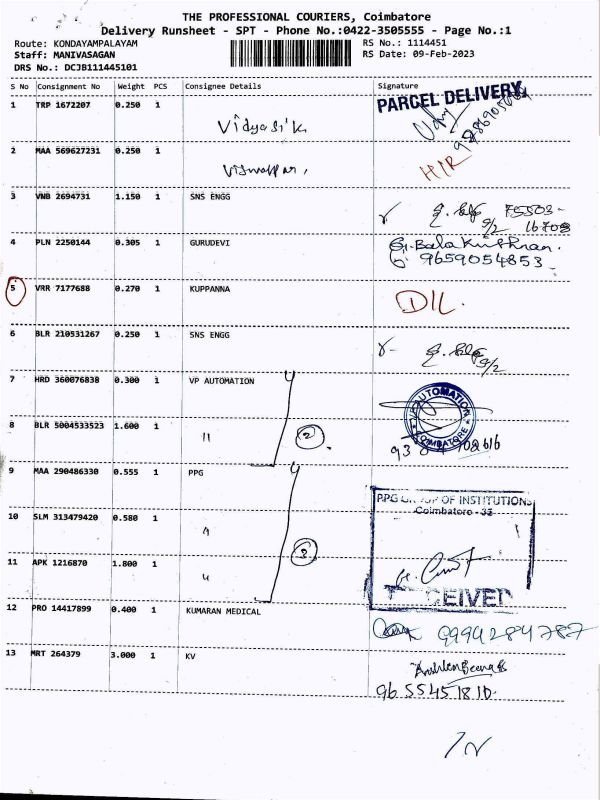 THE PROFESSIONAL COURIERS, Coimbatore
Delivery Runsheet - SPT - Phone No.:0422-3505555 - Page No.:1
Route: KONDAYAMPALAYAM
Staff: MANIVASAGAN
DRS No.: DCJB111445101
RS No.: 1114451
RS Date: 09-Feb-2023
S No Consignment No Weight PCS Consignee Details Signature
1 TRP 1672207 0.250 1 Vidyasik PARCEL DELIVERY
2 MAA 569627231 0.250 1
3 VNB 2694731 1.150 1 SNS ENGG 75503-
9/2 16703
4 PLN 2250144 0.305 1 GURUDEVI G.Balakrishnan.
9659054853
5 VRR 7177688 0.270 1 KUPPANNA DIL.
6 BLR 210531267 0.250 1 SNS ENGG 9/2
7 HRD 360076838 0.300 1 VP AUTOMATION VP AUTOMATION
COIMBATORE
8 BLR 5004533523 1.600 1 11 2
9 MAA 290486330 0.555 1 PPG PPG GROUP OF INSTITUTIONS
Coimbatore - 35
10 SLM 313479420 0.580 1
11 APK 1216870 1.800 1 3
RECEIVED
12 PRO 14417899 0.400 1 KUMARAN MEDICAL 9994284787
13 MRT 264379 3.000 1 KV
9655451810